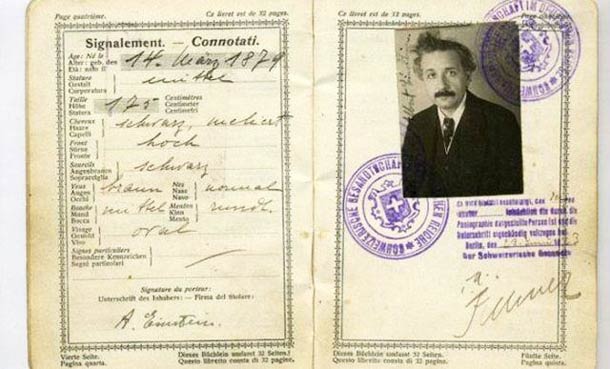 Page quatrième. Ce livret est de 32 pages.
Signalement. — Connotati.
Age: Né le
Alter: geb. den
Età: nato il
14. März 1879
Stature
Gestalt
Corporatura
mittel
Taille
Höhe
Statura
175
Centimètres
Centimeter
Centimetri
Cheveux
Haare
Capelli
schwarz, meliert
Front
Stirne
Fronte
hoch
Sourcils
Augenbrauen
Sopracciglia
schwarz
Yeux
Augen
Occhi
braun
Nez
Nase
Naso
normal
Bouche
Mund
Bocca
mittel
Menton
Kinn
Mento
rund.
Visage
Gesicht
Viso
oval
Signes particuliers
Besondere Kennzeichen
Segni particolari
Signature du porteur:
Unterschrift des Inhabers: — Firma del titolare:
A. Einstein.
Vierte Seite. Dieses Büchlein umfasst 32 Seiten.
Pagina quarta. Questo libretto consta di 32 pagine.
Ce livret est de 32 pages.
SCHWEIZERISCHE GESANDTSCHAFT
die durch die
Photographie dargestellte Person ist und die
Unterschrift eigenhändig vollzogen hat.
Berlin, den
Der Schweizerische Gesandte
Dieses Büchlein umfasst 32 Seiten. Fünfte Seite.
Questo libretto consta di 32 pagine. Pagina quinta.